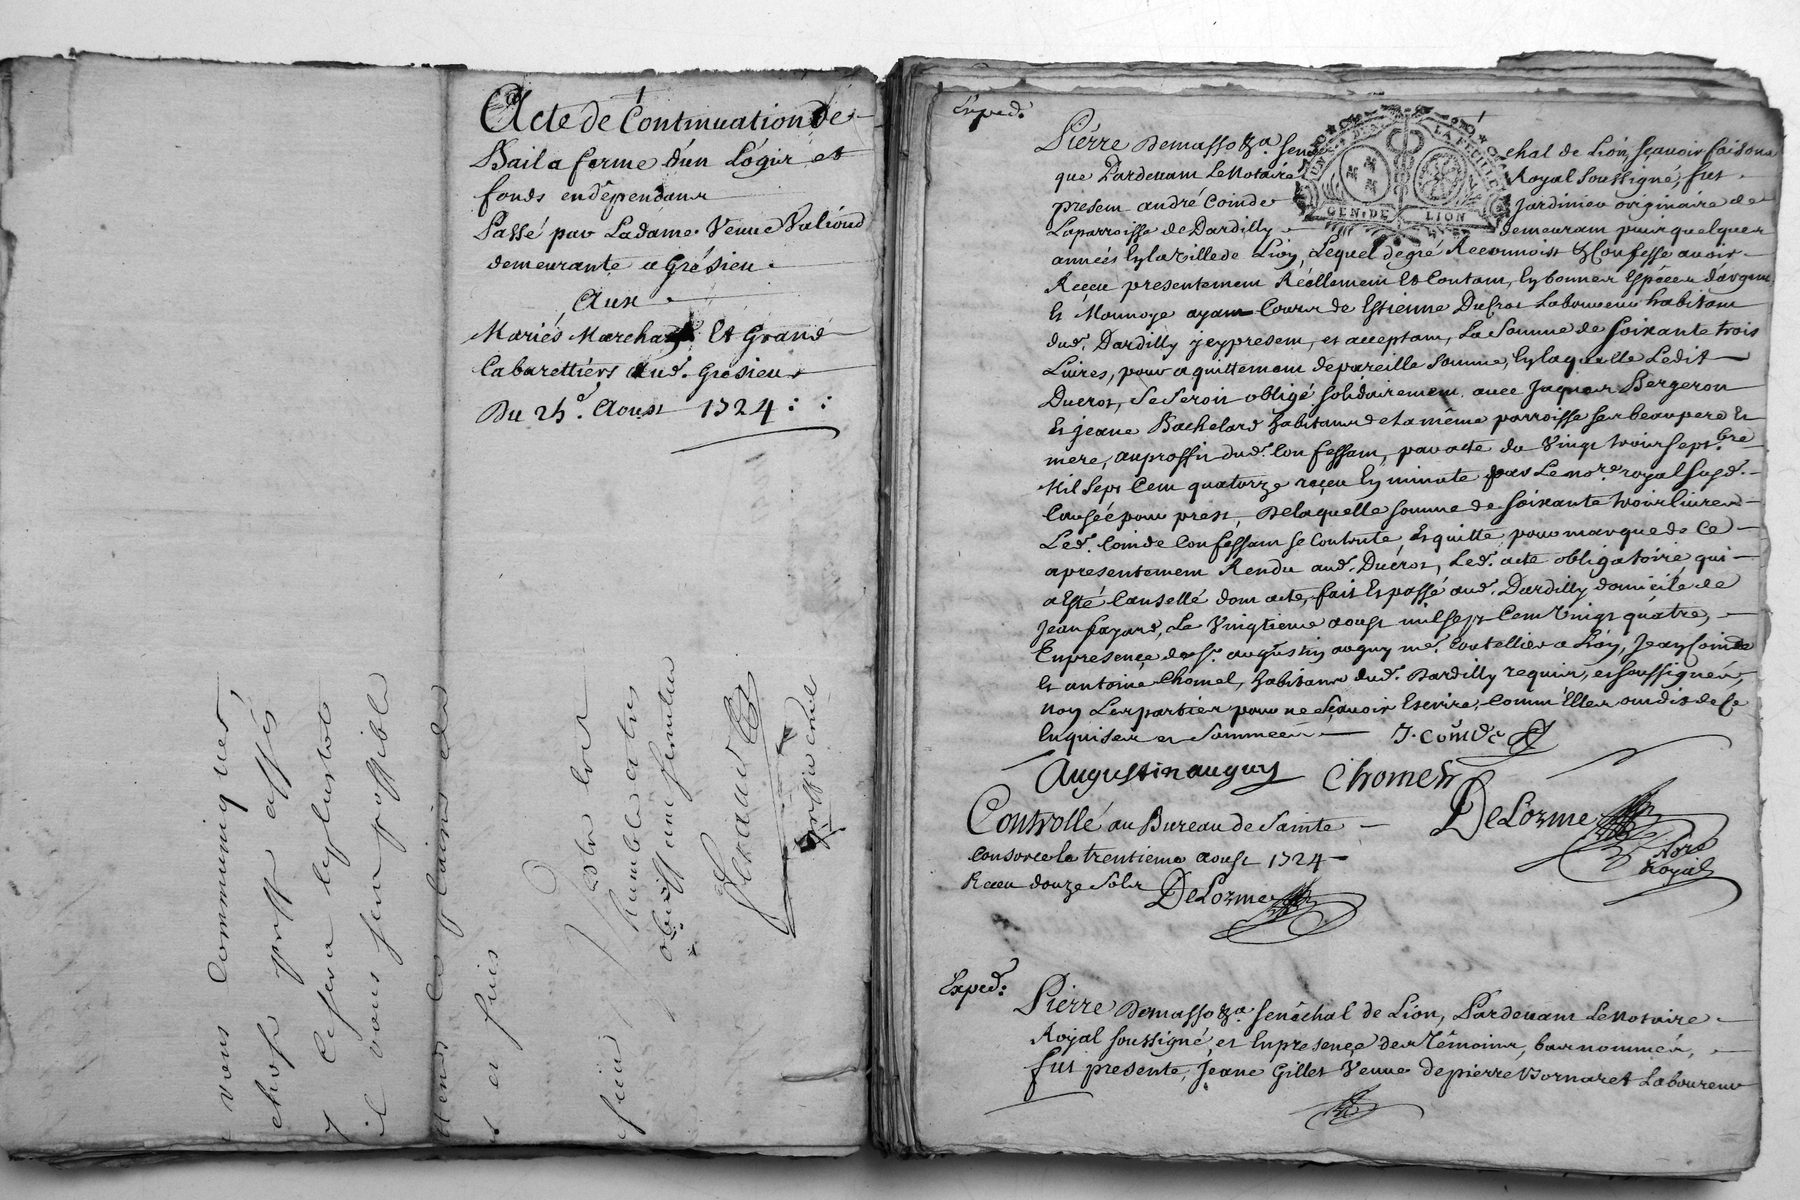 Acte de Continuation de
Bail a ferme d'un Logis et
fonds en dépendans
Passé par La dame Veuve Valioud
demeurante a Grésieu.
Aux
Mariés Marchand et Grand
Cabarettiers aud. Grésieu
Du 25e. Aoust 1724 : :
vous communiquer
chose
il vous sera possible
et suis
Votre tres
humble et tres
obeissant serviteur
Exped.
Pierre Demasso &a. Senechal de Lion, sçavoir faisons
que Pardevant Le Notaire Royal soussigné, fut
present andré Coinde Jardinier originaire de
La parroisse de Dardilly demeurant puis quelques
années En la ville de Lion, Lequel de gré Reconnoist & Confesse avoir
Reçeu presentement Réellement Et Contant, En bonnes Espéces d'argent
Et Monnoye ayant Cours de Estienne Ducros Laboureur habitant
dud. Dardilly icy present, et acceptant, La Somme de soixante trois
Livres, pour aquittement de pareille somme, En laquelle Ledit
Ducros, Se Seroit obligé solidairement avec Jaques Bergeron
Et Jeane Bachelard habitans de la même parroisse ses beaupere Et
mere, au proffit dud. Confessant, par acte du Vingt trois Septbre
Mil Sept Cent quatorze reçeu En minute par Le nore. royal susd.
Causée pour prest, De laquelle somme de soixante trois livres
Led. Coinde Confessant se Contente, Et quitte, pour marque de Ce
a presentement Rendu aud. Ducros, Led. acte obligatoire, qui
a Esté Cansellé dont acte, fait Et passé aud. Dardilly domicile de
Jean fayard, Le Vingtieme aoust mil sept Cent Vingt quâtre,
En presence de Sr. augustin auguy me. Coutellier a Lion, Jean Coinde
Et antoine Chomel, habitans dud. Dardilly requis, et soussignés
non Les parties pour ne sçavoir Escrire, Comm'Elles ont dit de Ce
Enquises et Sommées J. Coinde
Augustin auguy Chomell
DeLorme
Nore
Royal
Controllé au Bureau de Sainte
Consorce le trentieme aoust 1724
Reçeu douze Sols DeLorme
Exped.
Pierre Demasso &a. Senéchal de Lion, Pardevant Le Notaire
Royal soussigné, et En presençe des Témoins, bas nommés,
fut presente, Jeane Gillet Veuve de pierre Bornaret Laboureur